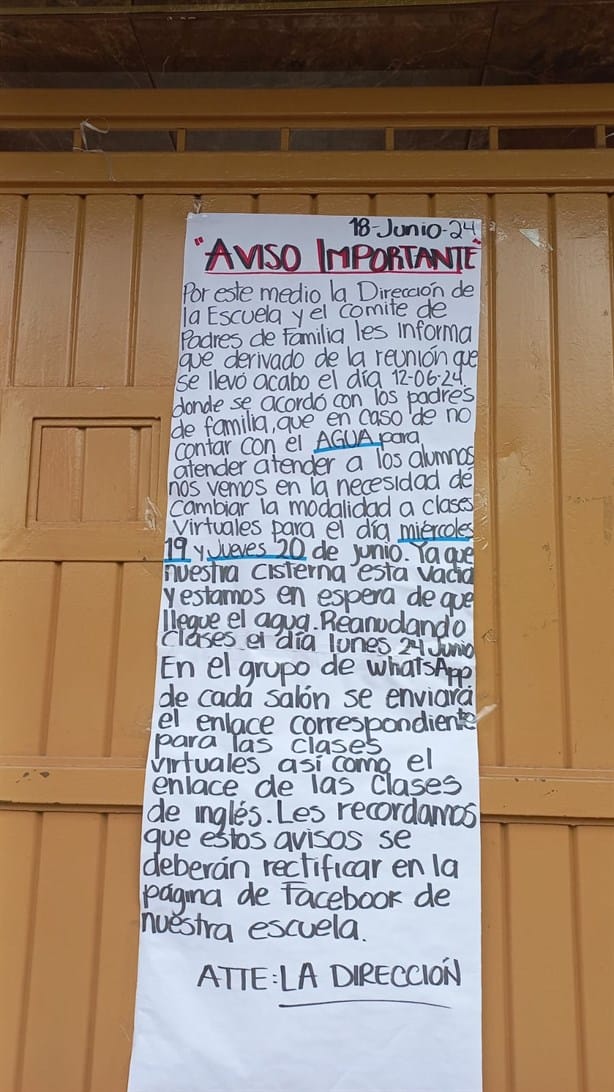 18-Junio-24
"AVISO IMPORTANTE"
Por este medio la Dirección de
la Escuela y el comite de
Padres de Familia les informa
que derivado de la reunión que
se llevó acabo el día 12-06-24.
donde se acordó con los padres
de familia, que en caso de no
contar con el AGUA para
atender atender a los alumnos
nos vemos en la necesidad de
Cambiar la modalidad a clases
Virtuales para el día miércoles
19 y Jueves 20 de junio. Ya que
nuestra cisterna esta vacia
y estamos en espera de que
llegue el agua. Reanudando
clases el día lunes 24 Junio
En el grupo de whatsApp
de cada salón se enviará
el enlace correspondiente
para las clases
virtuales así como el
enlace de las clases
de inglés. Les recordamos
que estos avisos se
deberán rectificar en la
página de Facebook de
nuestra escuela.
ATTE: LA DIRECCIÓN